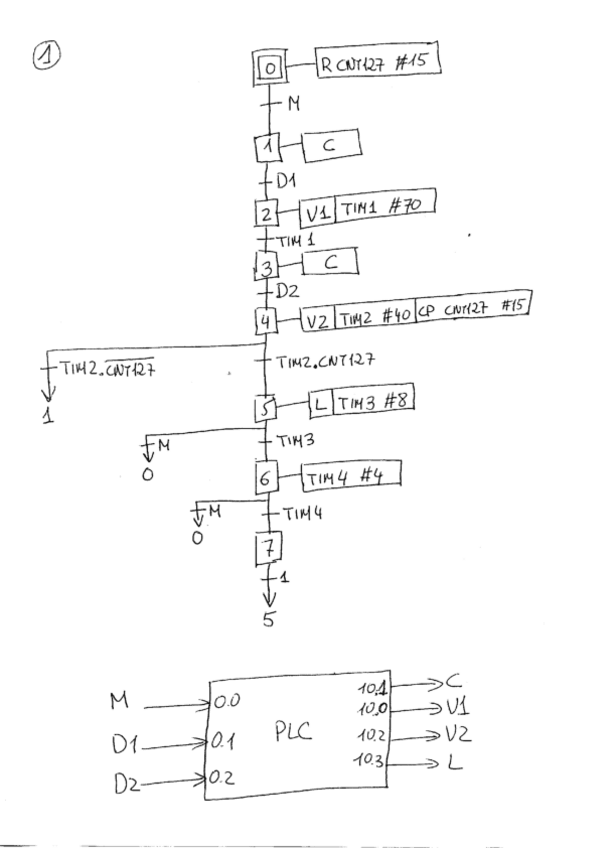 1
0 R CNT127 #15
M
1 C
D1
2 V1 TIM1 #70
TIM1
3 C
D2
4 V2 TIM2 #40 CP CNT127 #15
TIM2.C̅N̅T̅1̅2̅7̅ TIM2.CNT127
1
5 L TIM3 #8
M TIM3
0
6 TIM4 #4
M TIM4
0
7
1
5
M 0.0 10.1 C
10.0 V1
D1 0.1 PLC 10.2 V2
D2 0.2 10.3 L